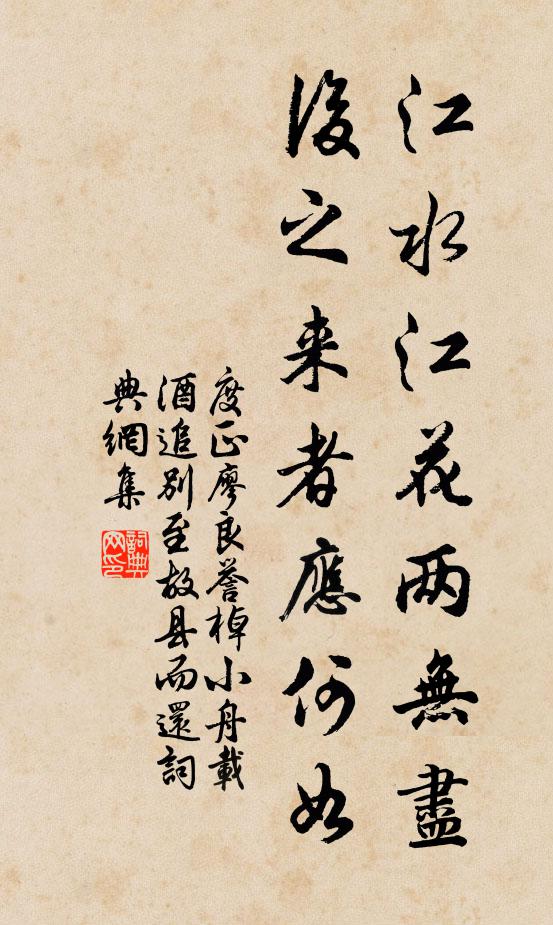 江水江花两無盡
後之来者應何如
度正廖良誉棹小舟載
酒追别至故县而還詞
典網集
詞典网印